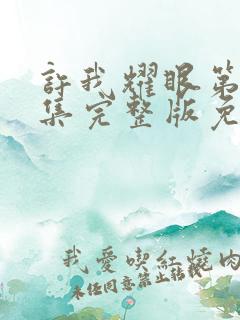 許我耀眼第
集完整版免
我愛喫紅燒肉
未任同意禁止轉載